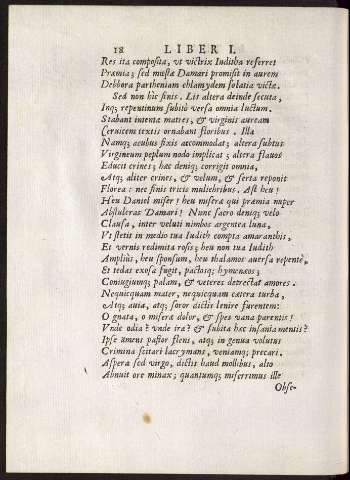 18 LIBER I.
Res ita composita, vt victrix Iuditha referret
Præmia; sed mœsta Damari promisit in aurem
Debbora partheniam chlamydem solatia victæ.
Sed non hìc finis. Lit altera deinde secuta,
Inq; repentinum subitò versa omnia luctum.
Stabant intenta matres, & virginis auream
Ceruicem textis ornabant floribus. Illa
Namq; acubus fixis accommodat; altera subtus
Virgineum peplum nodo implicat; altera flauos
Educit crines; hac deniq; corrigit omnia,
Atq; aliter crines, & velum, & serta reponit
Florea: nec finis tricis muliebribus. Ast heu!
Heu Daniel miser! heu miseræ qui præmia nuper
Abstuleras Damari! Nunc sacro deniq; velo
Clausa, inter veluti nimbos argentea luna,
Vt stetit in medio tua Iudith compta amaranthis,
Et vernis redimita rosis; heu non tua Iudith
Ampliùs, heu sponsum, heu thalamos auersa repentè,
Et tedas exosa fugit, pactosq; hymenæos;
Coniugiumq; palam, & veteres detrectat amores.
Nequicquam mater, nequicquam cætera turba,
Atq; auia, atq; soror dictis lenire furentem:
O gnata, o miseræ dolor, & spes vana parentis!
Vnde odia? vnde ira? & subita hæc insania mentis?
Ipse amens pastor flens, atq; in genua volutus
Crimina scitari lacrymans, veniamq; precari.
Asperæ sed virgo, dictis haud mollibus, alto
Abnuit ore minax; quantumq; miserrimus ille
Obse-